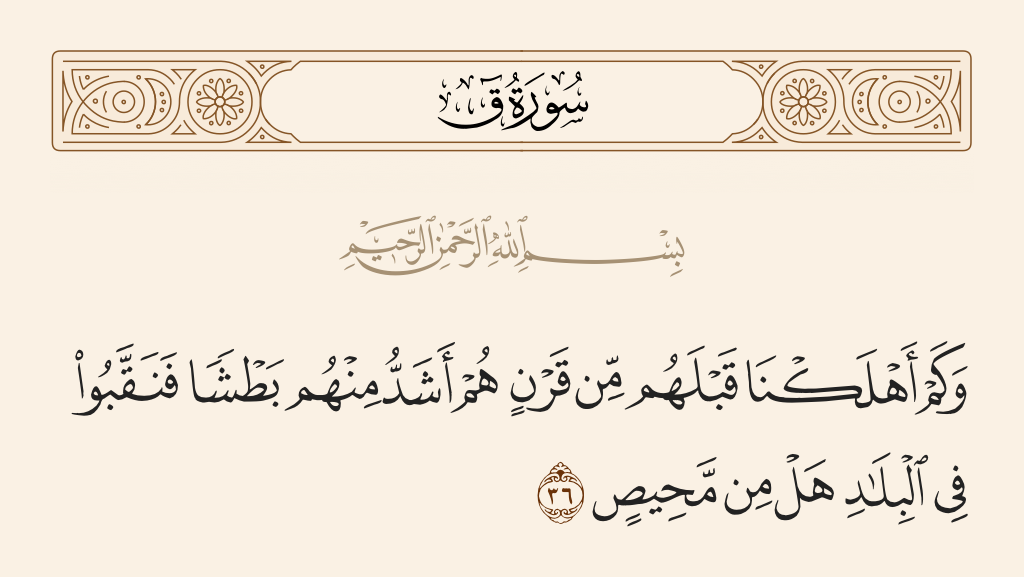 سُورَةُ قٓ
بِسْمِ ٱللَّهِ ٱلرَّحْمَٰنِ ٱلرَّحِيمِ
وَكَمْ أَهْلَكْنَا قَبْلَهُم مِّن قَرْنٍ هُمْ أَشَدُّ مِنْهُم بَطْشًا فَنَقَّبُوا۟
فِى ٱلْبِلَٰدِ هَلْ مِن مَّحِيصٍ ٣٦